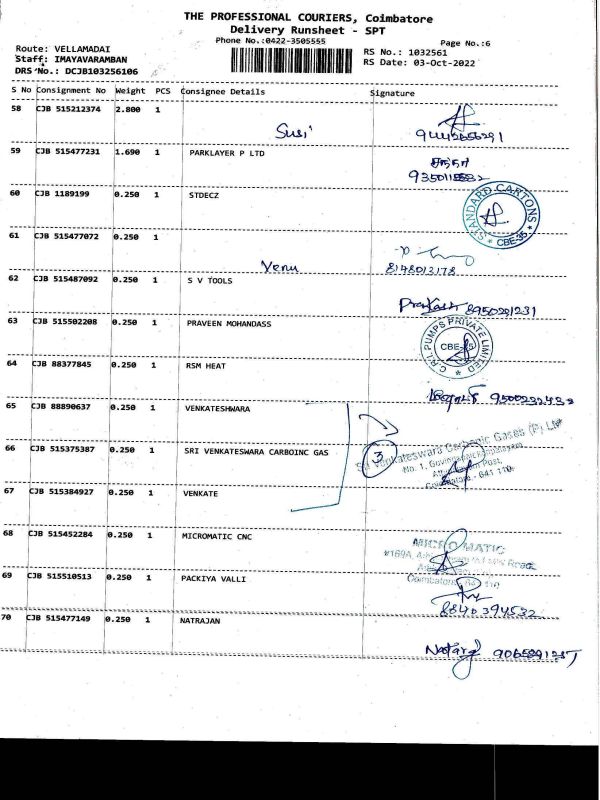 THE PROFESSIONAL COURIERS, Coimbatore
Delivery Runsheet - SPT
Phone No.:0422-3505555
Page No.:6
Route: VELLAMADAI
RS No.: 1032561
Staff: IMAYAVARAMBAN
RS Date: 03-Oct-2022
DRS No.: DCJB103256106
S No Consignment No Weight PCS Consignee Details Signature
58 CJB 515212374 2.800 1
Susi
59 CJB 515477231 1.690 1 PARKLAYER P LTD
60 CJB 1189199 0.250 1 STDECZ
STANDARD CARTONS
CBE-35
61 CJB 515477072 0.250 1
Venu 8148013178
62 CJB 515487092 0.250 1 S V TOOLS
Prakash 8950291231
63 CJB 515502208 0.250 1 PRAVEEN MOHANDASS
C.R.I. PUMPS PRIVATE LIMITED
CBE-35
64 CJB 88377845 0.250 1 RSM HEAT
9500232432
65 CJB 88890637 0.250 1 VENKATESHWARA
66 CJB 515375387 0.250 1 SRI VENKATESWARA CARBOINC GAS
3
Sri Venkateswara Carbonic Gases (P) Ltd
No. 1,
Post,
Coimbatore - 641 110.
67 CJB 515384927 0.250 1 VENKATE
68 CJB 515452284 0.250 1 MICROMATIC CNC
MICRO MATIC
#169A,
Road,
Coimbatore
69 CJB 515510513 0.250 1 PACKIYA VALLI
8840394532
70 CJB 515477149 0.250 1 NATRAJAN
Nataraj